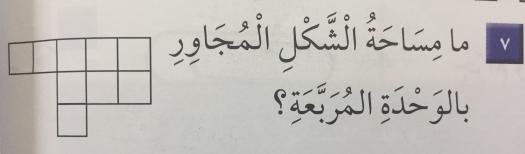 ٧ ما مِسَاحَةُ الْشَّكْلِ الْمُجَاوِرِ
بالوَحْدَةِ المُرَبَّعَةِ؟